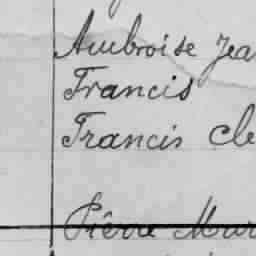 Ambroise Jea
Francis
Francis Cle
Piêrre Mur